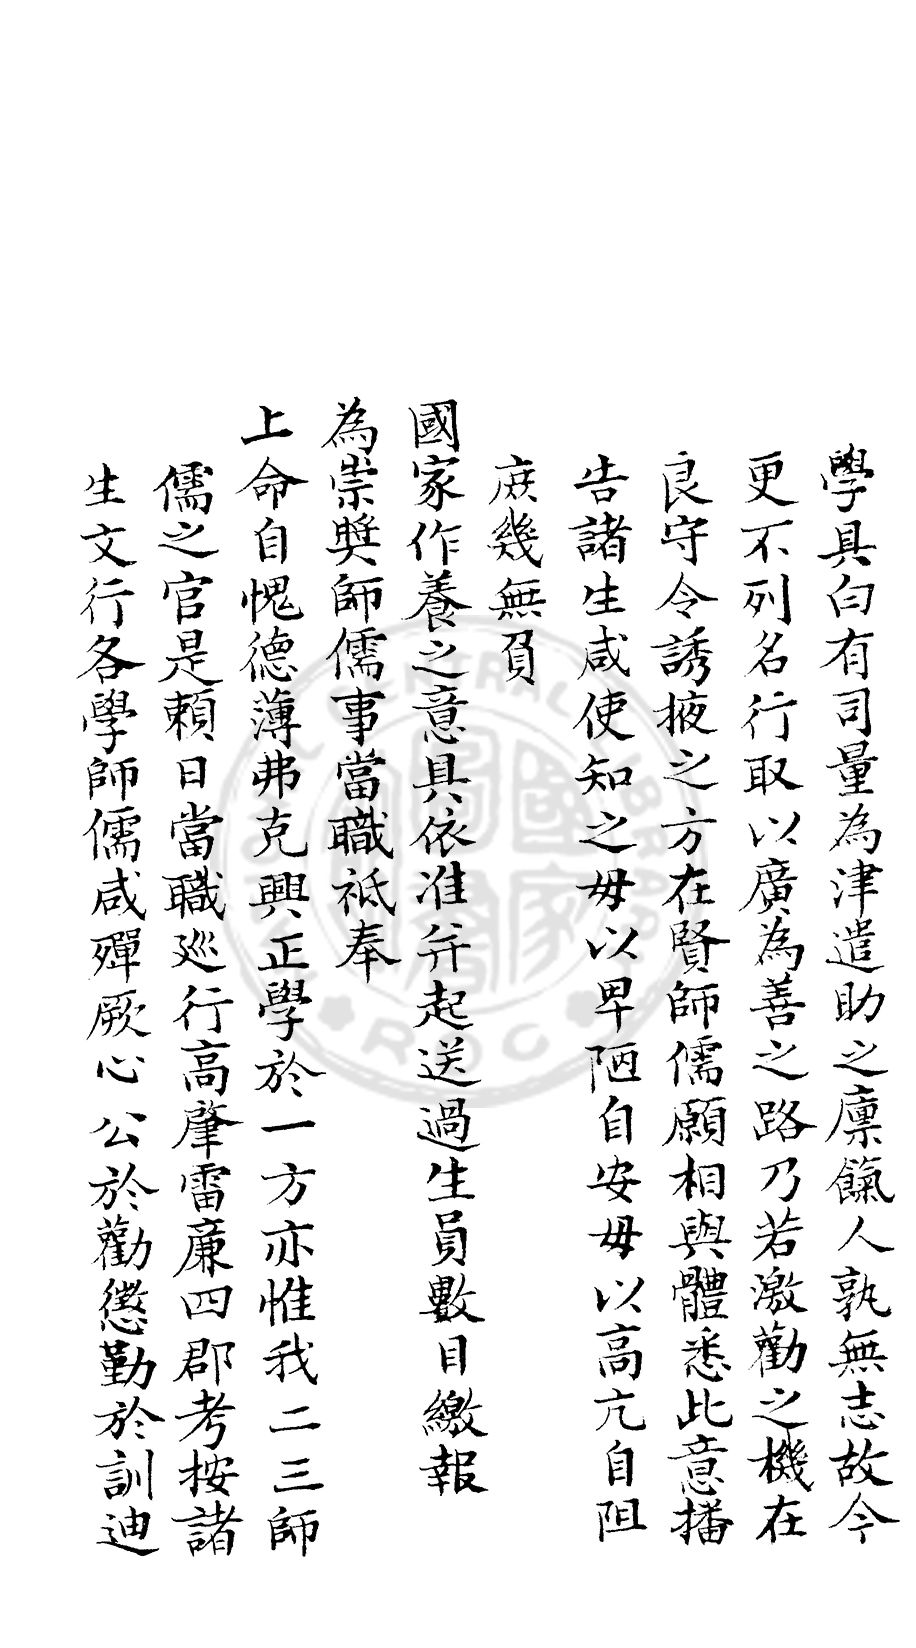 學具白有司量為津遣助之廩餼人孰無志故今
更不列名行取以廣為善之路乃若激勸之機在
良守令誘掖之方在賢師儒願相與體悉此意播
告諸生咸使知之毋以卑陋自安毋以高亢自阻
庶幾無負
國家作養之意具依准并起送過生員數目繳報
為崇奬師儒事當職祗奉
上命自愧德薄弗克興正學於一方亦惟我二三師
儒之官是賴日當職廵行高肇雷廉四郡考按諸
生文行各學師儒咸殫厥心公於勸懲勤於訓迪
CENTRAL LIBRARY
ROC
國家圖書